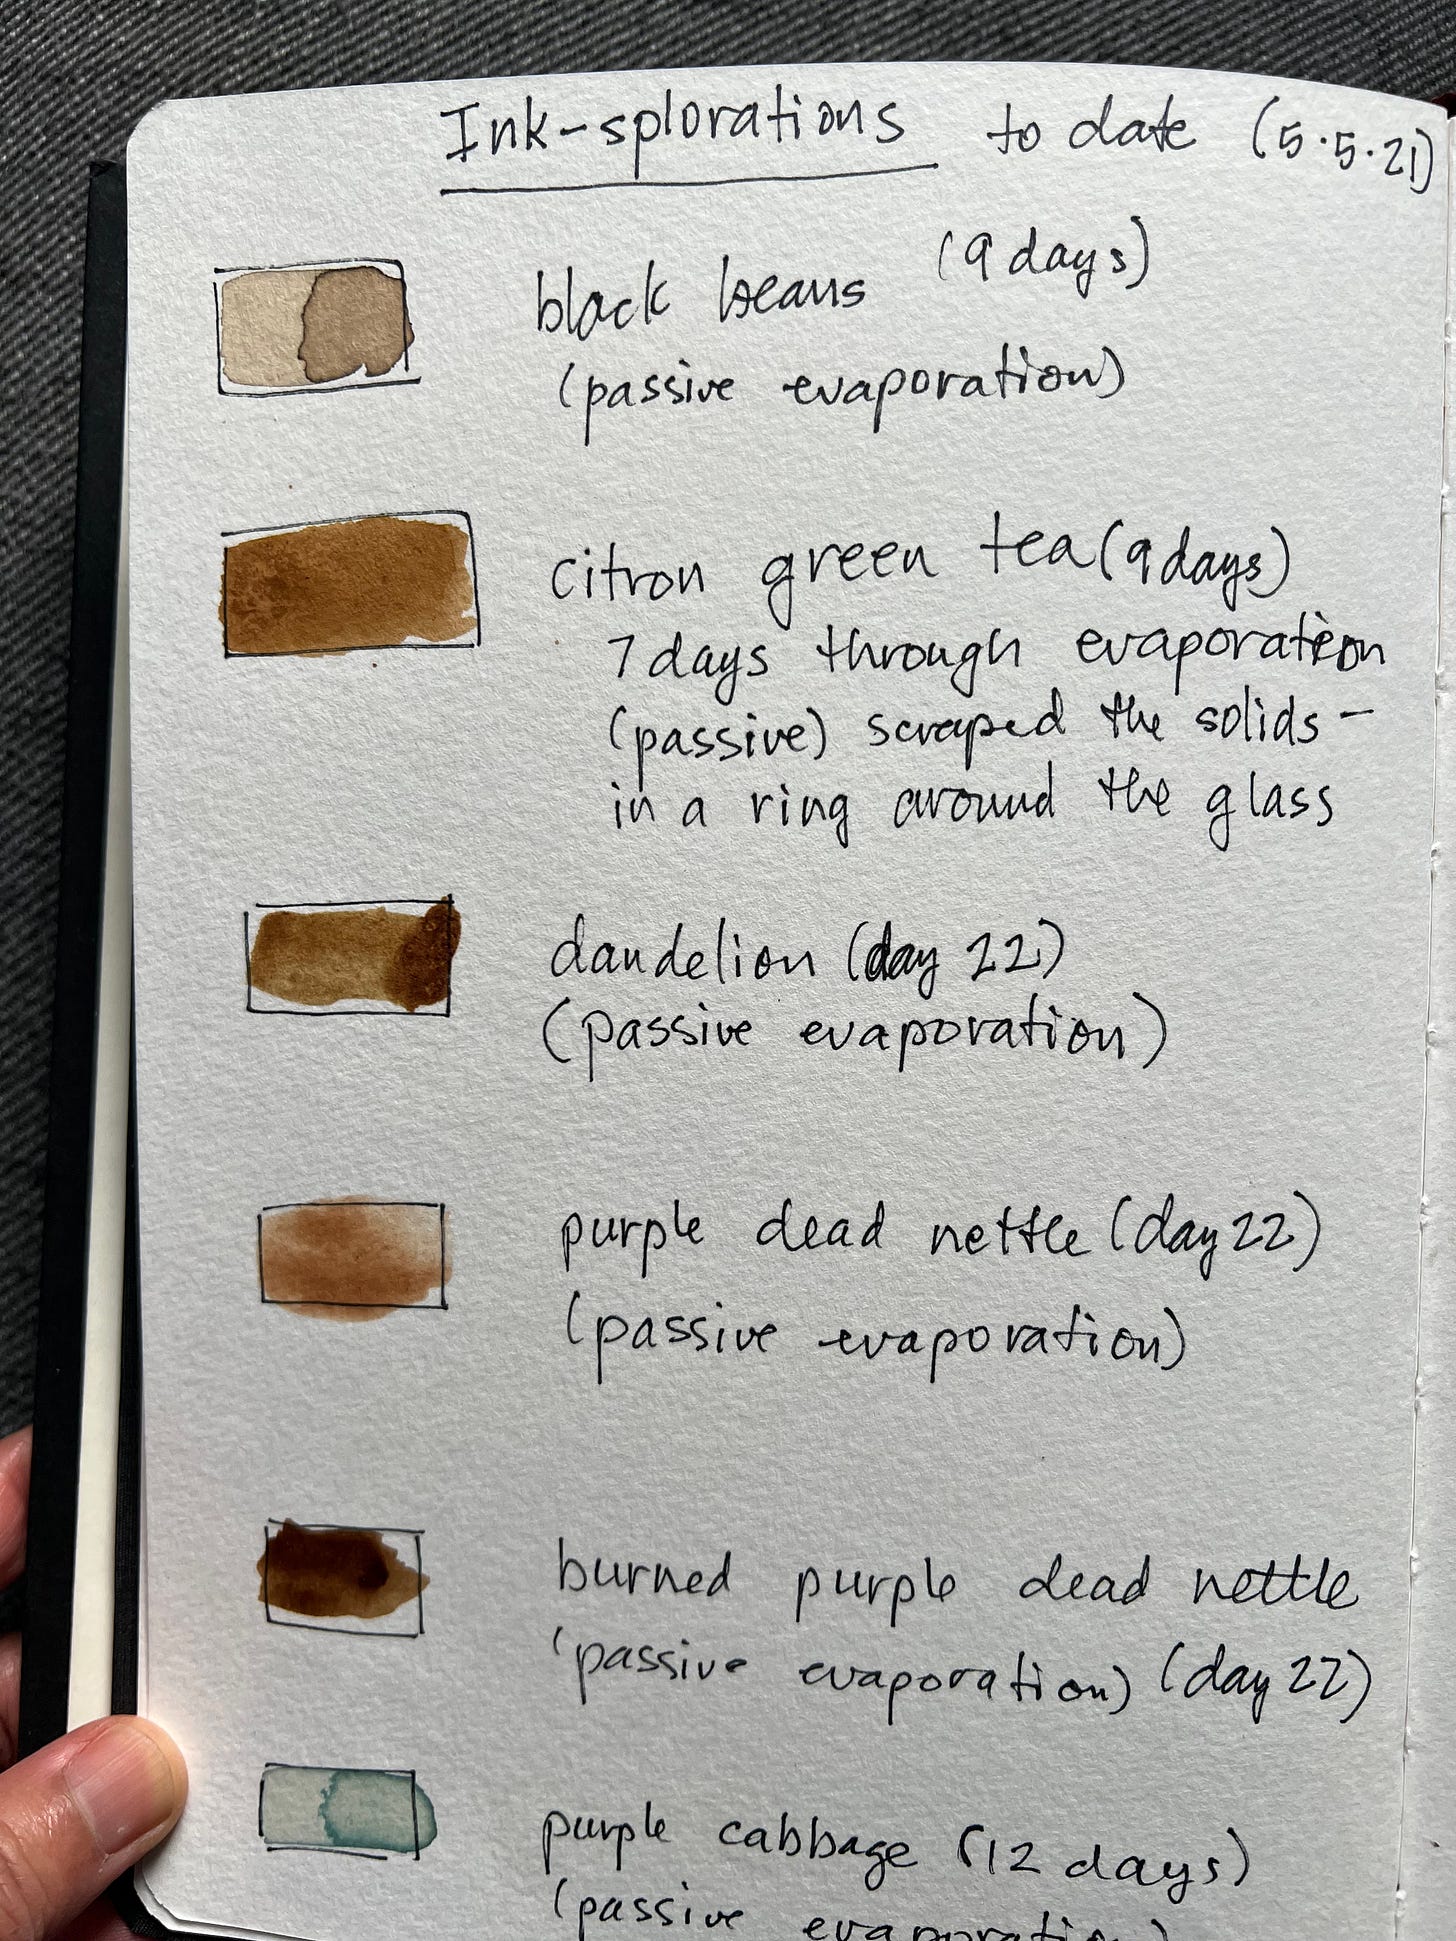 Ink-splorations to date (5.5.21)
black beans (9 days)
(passive evaporation)
citron green tea (9 days)
7 days through evaporation
(passive) scraped the solids -
in a ring around the glass
dandelion (day 22)
(passive evaporation)
purple dead nettle (day 22)
(passive evaporation)
burned purple dead nettle
(passive evaporation) (day 22)
purple cabbage (12 days)
(passive evaporation)